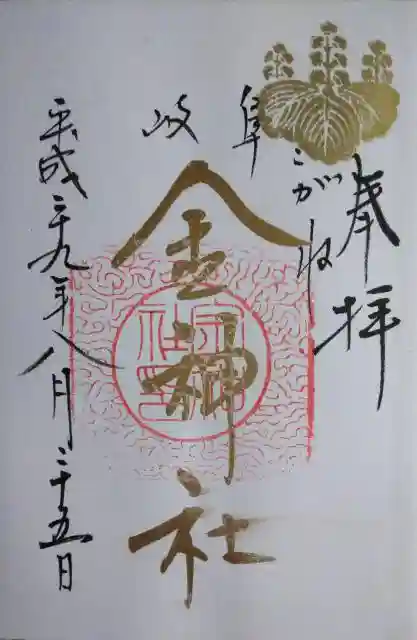 奉拝
岐阜
こがね
金神社
平成二十九年八月二十五日